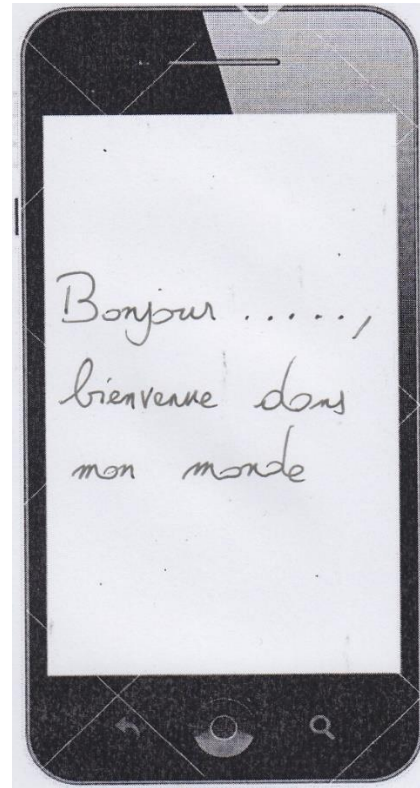 Bonjour .....,
bienvenue dans
mon monde